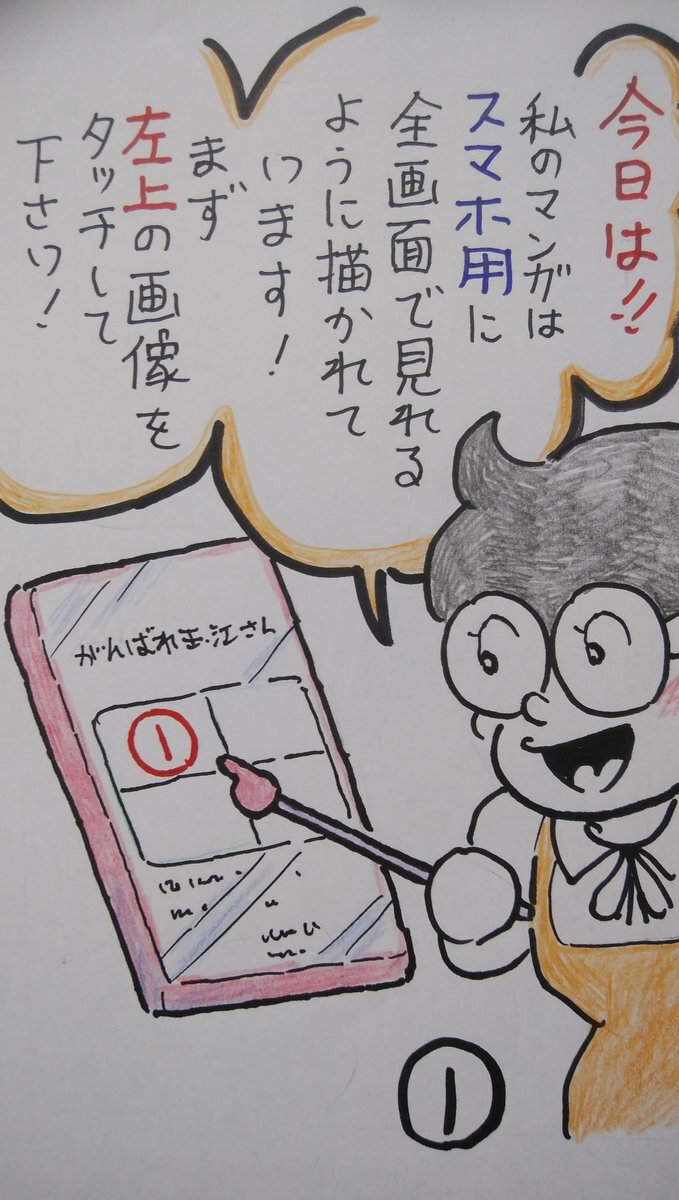 今日は!!
私のマンガは
スマホ用に
全画面で見れる
ように描かれて
います!
まず
左上の画像を
タッチして
下さい!
がんばれ玉江さん
①
①